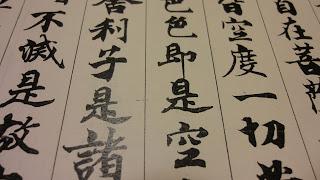 自在菩薩
皆空度一切苦
色色即是空
舍利子是諸
不滅是故